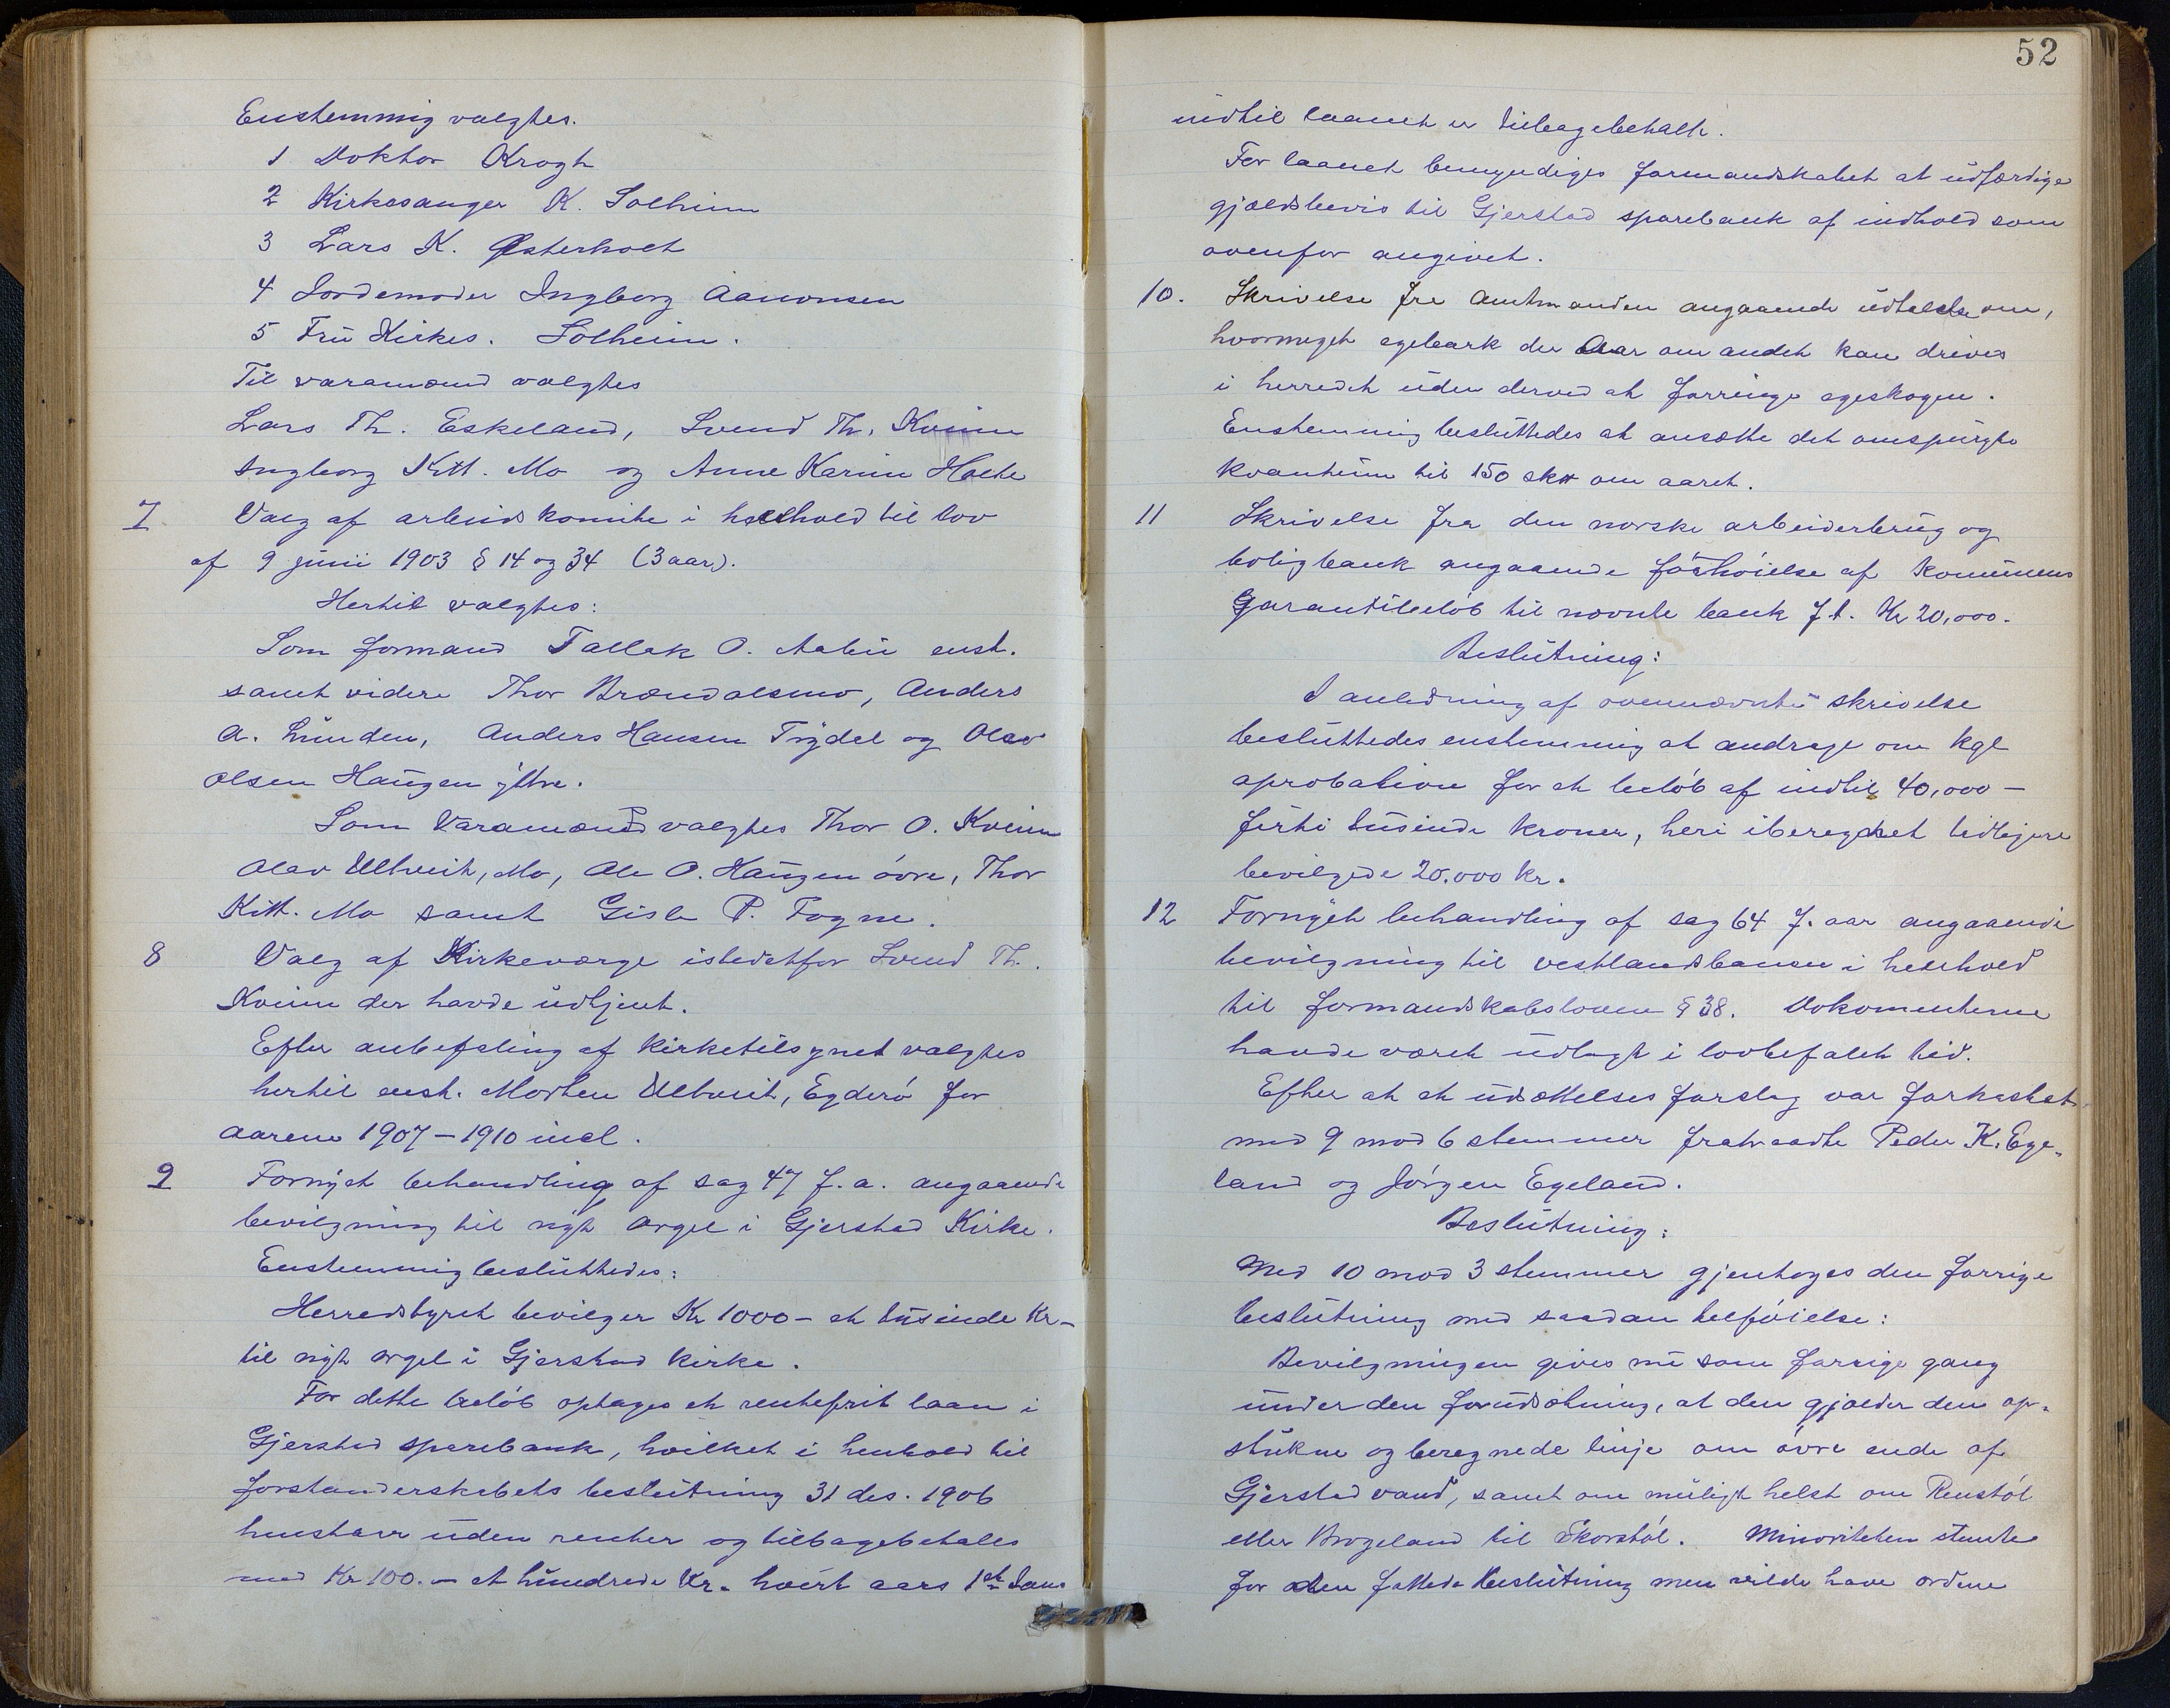 Enstemmig valgtes.
1 Doktor Krogh
2 Kirkesanger K. Solheim
3 Lars K. Østerholt
4 Jordemoder Ingborg Aanonsen
5 Frü Kirkes. Solheim.
Til varamænd valgtes
Lars Th. Eskeland, Svend Th. Kveim
Ingborg Kitt. Mo og Anne Karine Holte
7 Valg af arbeidskomite i henhold til lov
af 9 juni 1903 § 14 og 34 (3 aar).
Hertil valgtes:
Som formand Tallak O. Aabø enst.
samt videre Thor Brændalsmo, Anders
A. Lunden, Anders Hansen Trydal og Olav
Olsen Haugen ytre.
Som Varamænd valgtes Thor O. Kveim
Olav Ulltveit, Mo, Ole O. Haugen øvre, Thor
Kitt. Mo samt Gisle P. Fogne.
8 Valg af Kirkeværge istedetfor Svend Th.
Kveim der havde udtjent.
Efter anbefaling af kirketilsynet valgtes
hertil enst. Morten Ulltveit, Egderø for
aarene 1907 – 1910 incl.
9 Fornyet behandling af sag 47 f. a. angaaende
bevilgning til nyt orgel i Gjerstad Kirke.
Enstemmig besluttedes:
Herredstyret bevilger Kr 1000 – et tusinde kr –
til nyt orgel i Gjerstad kirke.
For dette beløb optages et rentefrit laan i
Gjerstad sparebank, hvilket i henhold til
forstanderskabets beslutning 31 des. 1906
henstaar uden renter og tilbagebetales
med Kr 100. – et hundrede Kr. hvert aars 1ste Jans
52
indtil laanet er tilbagebetalt.
For laanet bemyndiges formandskabet at udfærdige
gjældsbevis til Gjerstad sparebank af indhold som
ovenfor angivet.
10. Skrivelse fra Amtmanden angaaende udtalelse om,
hvormeget egebark der Aar om andet kan drives
i herredet uden derved at forringe egeskogen.
Enstemmig besluttedes at ansætte det omspurgte
kvantum til 150 sk₶ om aaret.
11 Skrivelse fra den norske arbeiderbrug og
boligbank angaaende forhøielse af Kommunens
Garantibeløb til nævnte bank f. t. Kr 20,000.
Beslutning:
I anledning af ovennævnte skrivelse
besluttedes enstemmig at andrage om kgl
aprobation for et beløb af indtil 40,000 –
førti tusinde kroner, heri iberegnet tidligere
bevilgede 20.000 kr.
12 Fornyet behandling af sag 64 f. aar angaaende
bevilgning til vestlandsbanen i henhold
til formandskabsloven § 38. Dokomenterne
havde været udlagt i lovbefalet tid.
Efter at et udsættelses forslag var forkastet
med 9 mod 6 stemmer fratraadte Peder K. Ege-
land og Jørgen Egeland.
Beslutning:
Med 10 mod 3 stemmer gjentages den forrige
beslutning med saadan tilføielse:
Bevilgningen gives nu som forrige gang
under den forudsætning, at den gjælder den op-
stukne og beregnede linje om øvre ende af
Gjerstadvand, samt om muligt helst om Renstøl
eller Brogeland til Skorstøl. Minoriteten stemte
for den fattede Beslutning men vilde have ordene